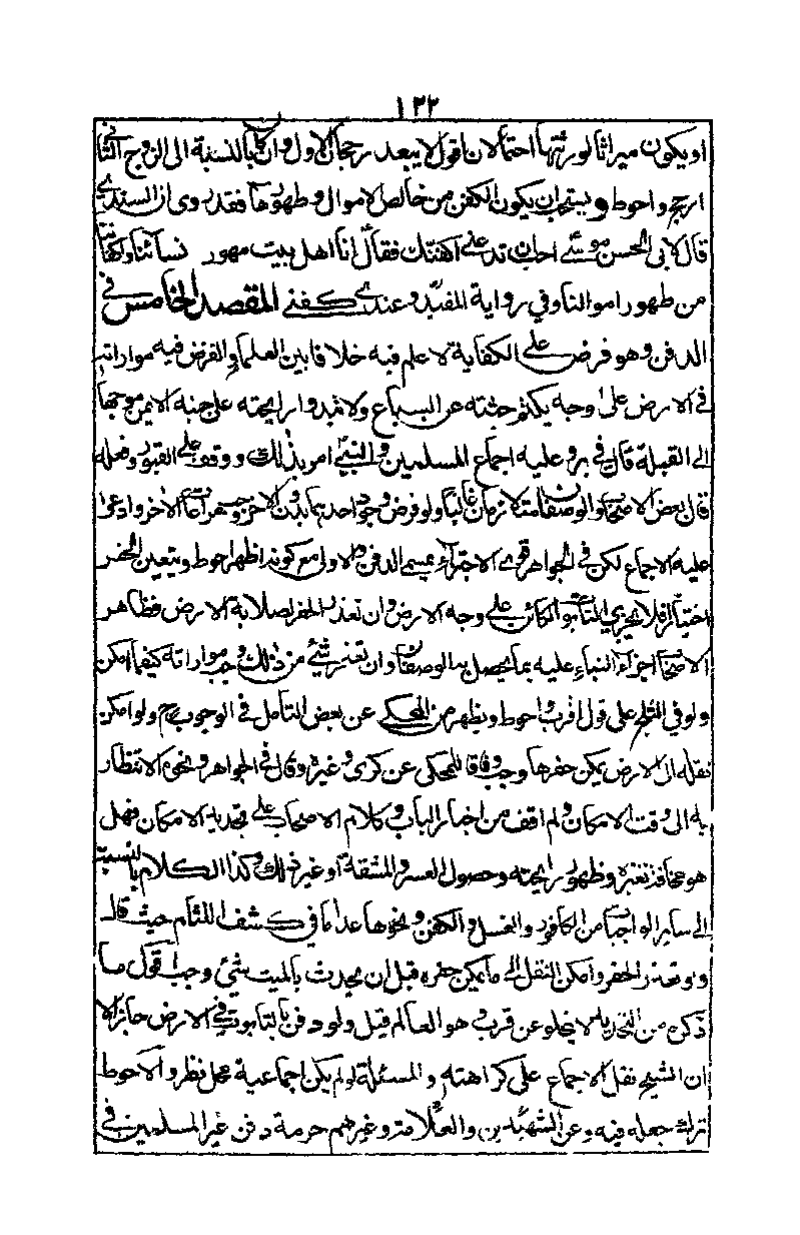 ١٢٢
او يكون ميراثا لورثتها احتمالان اقول لا يبعد رجحان الاول وان كا بالنسبة الى الزوج الثانى
ارجح واحوط ويستحب ان يكون الكفن من خالص الاموال وطهورها فقد روى ان السندى
قال لابى الحسن موسى احب ان تدعنى اكفنك فقال انا اهل بيت مهور نسائنا واكفاننا
من طهور اموالنا وفي رواية المفيد وعندى كفنى المقصد الخامس فى
الدفن وهو فرض على الكفاية لا علم فيه خلافا بين العلماء والفرض فيه مواراته
فى الارض على وجه يكتم جثته عن السباع ولا تبدو رايحته على جنبه الايمن موجها
الى القبلة قال فى وعليه اجماع المسلمين والنبى امر بذلك ووقف على القبور وفعله
قال بعض الاصحاب والوصفان متلازمان غالبا ولو فرض وجود احدهما بدون الاخر وجب مراعات الاخر وادعوا
عليه الاجماع لكن فى الجواهر قوى الاجتزاء بمسمى الدفن والاول مع كونه اظهر احوط ويتعين الحفر
اختيارا فلا يجزى التابوت الكائن على وجه الارض وان تعذر الحفر لصلابة الارض فظاهر
الاصحاب اجزاء البناء عليه بما يحصل به الوصفان وان تعذر شئ من ذلك وجب مواراته كيفما امكن
ولو فى الثلج على قول اقرب احوط ويظهر من المحكى عن بعض التامل فى الوجوب ح ولو امكن
نقله الى الارض يمكن حفرها وجب وفاقا للمحكى عن كرى وغيره وقال فى الجواهر ونحوه الانتظار
به الى وقت الامكان ولم اقف من اخبار الباب وكلام الاصحاب على تحديد الامكان فهل
هو مخافة تغيره وظهور رايحته وحصول العسر والمشقة او غير ذلك وكذا الكلام بالنسبة
الى ساير الواجبات من الكافور والغسل والكفن ونحوها عدا ما فى كشف اللثام حيث قال
ولو تعذر الحفر وامكن النقل الى ما يمكن حفره قبل ان يحدث بالميت شئ وجب اقول ما
ذكره من التحديد لا يخلو عن قرب هو العالم قيل ولو دفن بالتابوت فى الارض جاز الا
ان الشيخ نقل الاجماع على كراهته والمسئلة لو لم يكن اجماعية محل نظر والاحوط
ترك جعله فيه وعن الشهيدين والعلامة وغيرهم حرمة دفن غير المسلمين فى